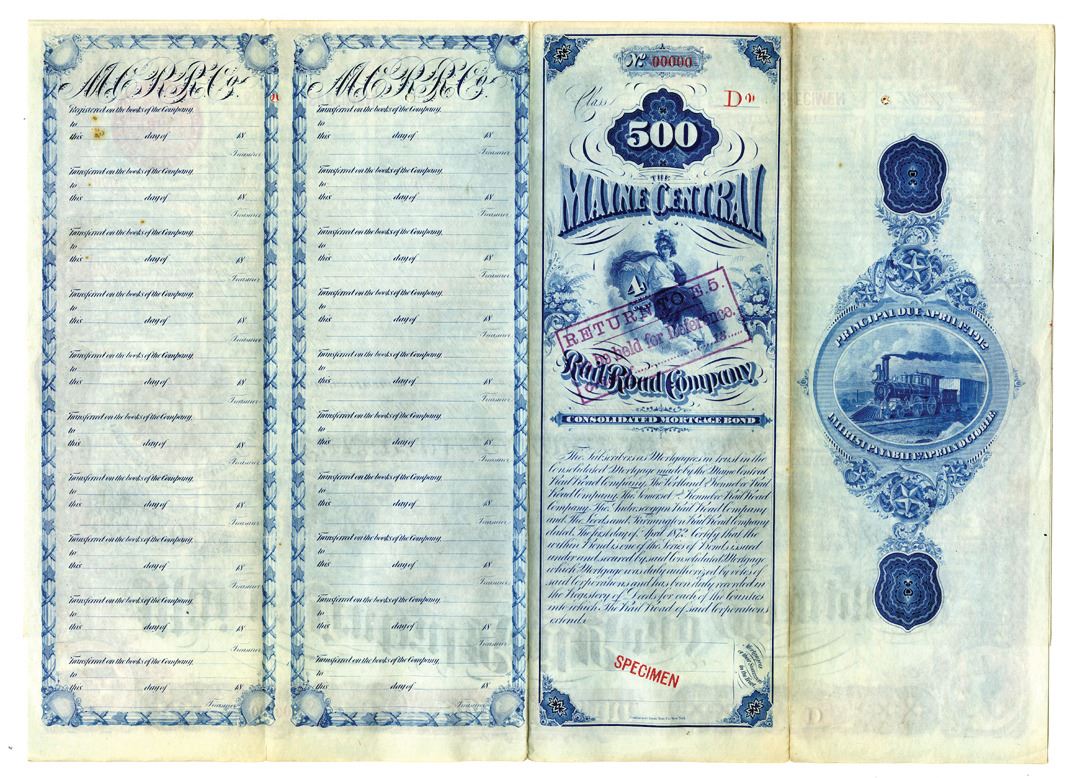 M.C.R.R.Co.
Registered on the books of the Company,
to
this day of 18
Treasurer
Transferred on the books of the Company,
to
this day of 18
Treasurer
Transferred on the books of the Company,
to
this day of 18
Treasurer
Transferred on the books of the Company,
to
this day of 18
Treasurer
Transferred on the books of the Company,
to
this day of 18
Treasurer
Transferred on the books of the Company,
to
this day of 18
Treasurer
Transferred on the books of the Company,
to
this day of 18
Treasurer
Transferred on the books of the Company,
to
this day of 18
Treasurer
Transferred on the books of the Company,
to
this day of 18
Treasurer
Transferred on the books of the Company,
to
this day of 18
Treasurer
M.C.R.R.Co.
Transferred on the books of the Company,
to
this day of 18
Treasurer
Transferred on the books of the Company,
to
this day of 18
Treasurer
Transferred on the books of the Company,
to
this day of 18
Treasurer
Transferred on the books of the Company,
to
this day of 18
Treasurer
Transferred on the books of the Company,
to
this day of 18
Treasurer
Transferred on the books of the Company,
to
this day of 18
Treasurer
Transferred on the books of the Company,
to
this day of 18
Treasurer
Transferred on the books of the Company,
to
this day of 18
Treasurer
Transferred on the books of the Company,
to
this day of 18
Treasurer
Transferred on the books of the Company,
to
this day of 18
Treasurer
No 00000
Class D
500
THE
MAINE CENTRAL
RETURN TO E.5.
be held for Reference.
Rail Road Company
CONSOLIDATED MORTGAGE BOND
The Subscribers as Mortgagees in trust in the
Consolidated Mortgage made by the Maine Central
Rail Road Company, The Portland & Kennebec Rail
Road Company, The Somerset and Kennebec Rail Road
Company, The Androscoggin Rail Road Company
and The Leeds and Farmington Rail Road Company
dated, The first day of April 1872 Certify that the
within Bond is one of the Series of Bonds issued
under and secured by said Consolidated Mortgage
which Mortgage was duly authorized by votes of
said Corporations and has been duly recorded in
the Registery of Deeds for each of the Counties
into which The Rail Road of said Corporations
extends.
SPECIMEN
Mortgagees
in the trust
PRINCIPAL DUE APRIL 1st 1912
INTEREST PAYABLE 1st APRIL AND OCTOBER